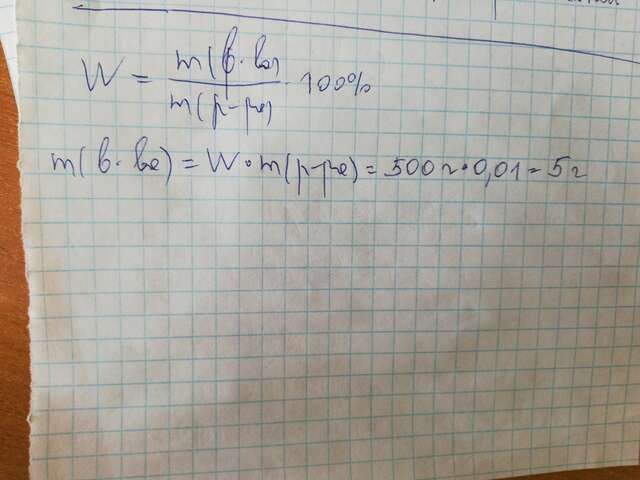 W = m(в-ва) / m(р-ра) · 100%
m(в-ва) = W • m(р-ра) = 500 г • 0,01 = 5 г